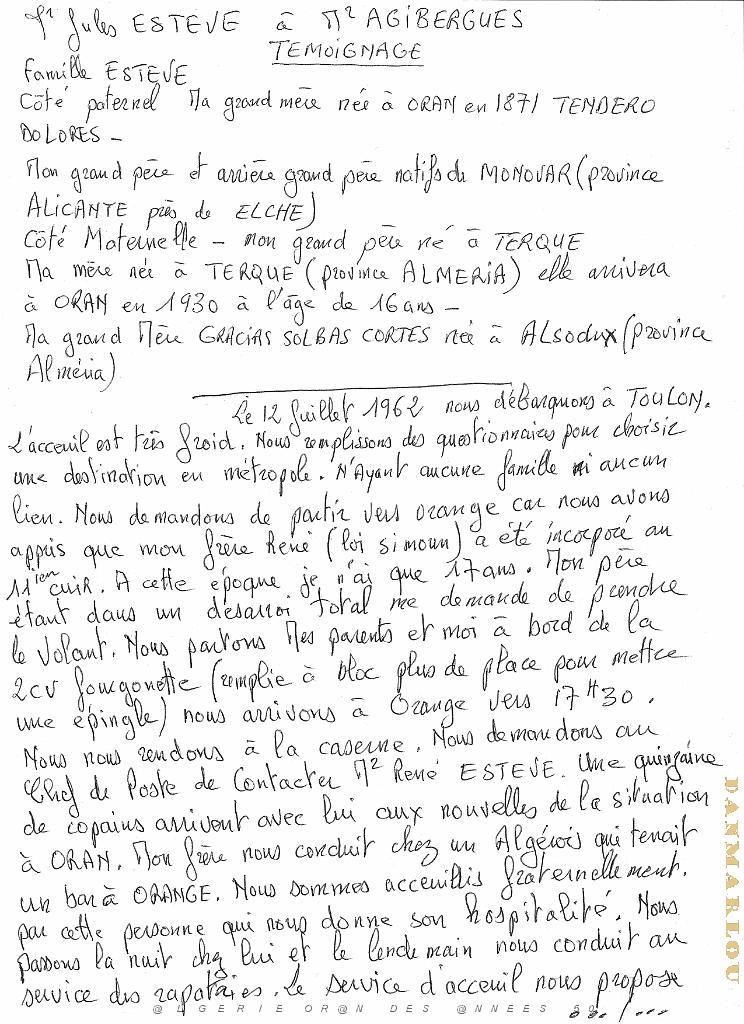 Mr Jules ESTEVE à Mr AGIBERGUES
TEMOIGNAGE
Famille ESTEVE
Côté paternel Ma grand mère née à ORAN en 1871 TENDERO
DOLORES -
Mon grand père et arrière grand père natifs de MONOVAR (province
ALICANTE près de ELCHE)
Côté Maternelle - mon grand père né à TERQUE
Ma mère née à TERQUE (province ALMERIA) elle arrivera
à ORAN en 1930 à l'âge de 16 ans -
Ma grand Mère GRACIAS SOLBAS CORTES née à ALSODUX (province
Alméria)
Le 12 Juillet 1962 nous débarquons à TOULON.
L'acceuil est très froid. Nous remplissons des questionnaires pour choisir
une destination en métropole. N'Ayant aucune famille ni aucun
lien. Nous demandons de partir vers orange car nous avons
appris que mon frère René (loi simoun) a été incorporé au
11ien cuir. A cette époque je n'ai que 17 ans. Mon père
étant dans un désarroi total me demande de prendre
le volant. Nous partons Mes parents et moi à bord de la
2cv fourgonette (remplie à bloc plus de place pour mettre
une épingle) nous arrivons à Orange vers 17H30.
Nous nous rendons à la caserne. Nous demandons au
Chef de Poste de Contacter Mr René ESTEVE. Une quinzaine
de copains arrivent avec lui aux nouvelles de la situation
à ORAN. Mon frère nous conduit chez un Algérois qui tenait
un bar à ORANGE. Nous sommes acceuillis fraternellement.
par cette personne qui nous donne son hospitalité. Nous
passons la nuit chez lui et le lendemain nous conduit au
service des rapatries. Le service d'acceuil nous propose
.../...
@LGERIE OR@N DES @NNEES 50
DANMARLOU